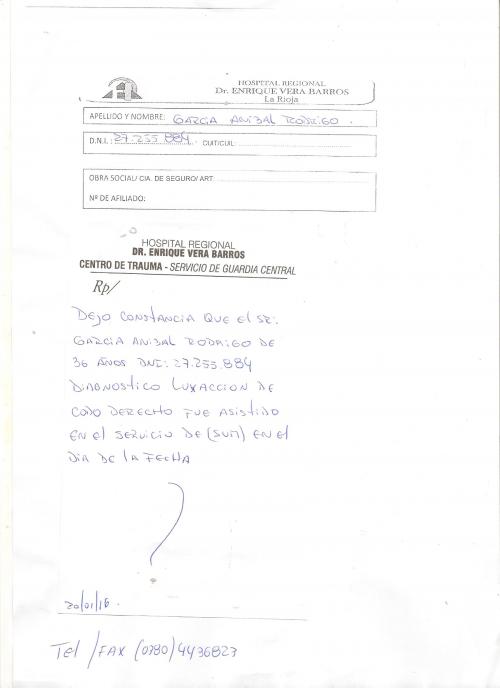 HOSPITAL REGIONAL
Dr. ENRIQUE VERA BARROS
La Rioja
APELLIDO Y NOMBRE: GARCIA ANIBAL RODRIGO.
D.N.I.: 27.255.884 CUIT/CUIL:
OBRA SOCIAL/ CIA. DE SEGURO/ ART:
Nº DE AFILIADO:
HOSPITAL REGIONAL
DR. ENRIQUE VERA BARROS
CENTRO DE TRAUMA - SERVICIO DE GUARDIA CENTRAL
Rp/
DEJO CONSTANCIA QUE El SR:
GARCIA ANIBAL RODRIGO DE
36 AÑOS DNI: 27.255.884
DIAGNOSTICO LUXACCION DE
CODO DERECHO FUE ASISTIDO
EN el SERVICIO DE (SUM) EN El
DIA DE LA FECHA
20/01/16.
Tel /FAX (0380) 4436823